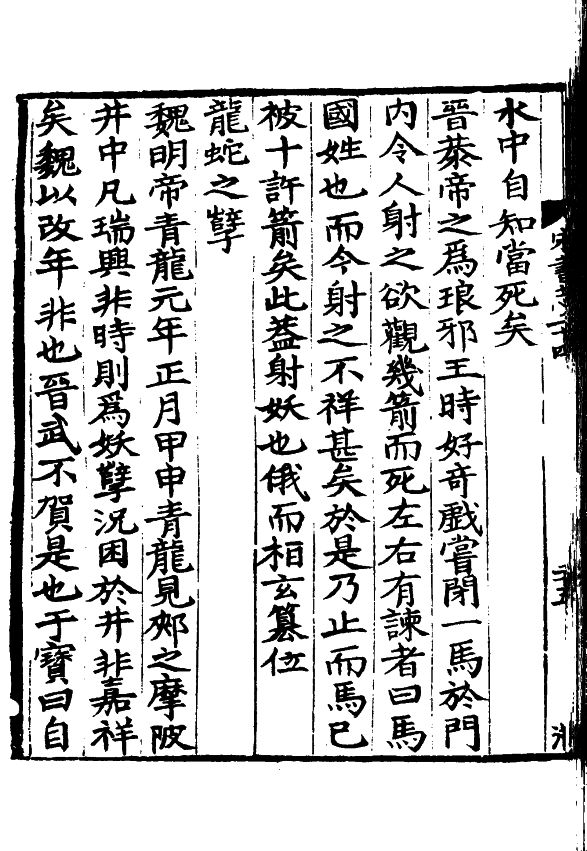 水中自知當死矣
晉恭帝之爲琅邪王時好奇戲嘗閉一馬於門
内令人射之欲觀幾箭而死左右有諫者曰馬
國姓也而今射之不祥甚矣於是乃止而馬已
被十許箭矣此蓋射妖也俄而桓玄篡位
龍蛇之孽
魏明帝青龍元年正月甲申青龍見郟之摩陂
井中凡瑞興非時則爲妖孽況困於井非嘉祥
矣魏以改年非也晉武不賀是也于寶曰自